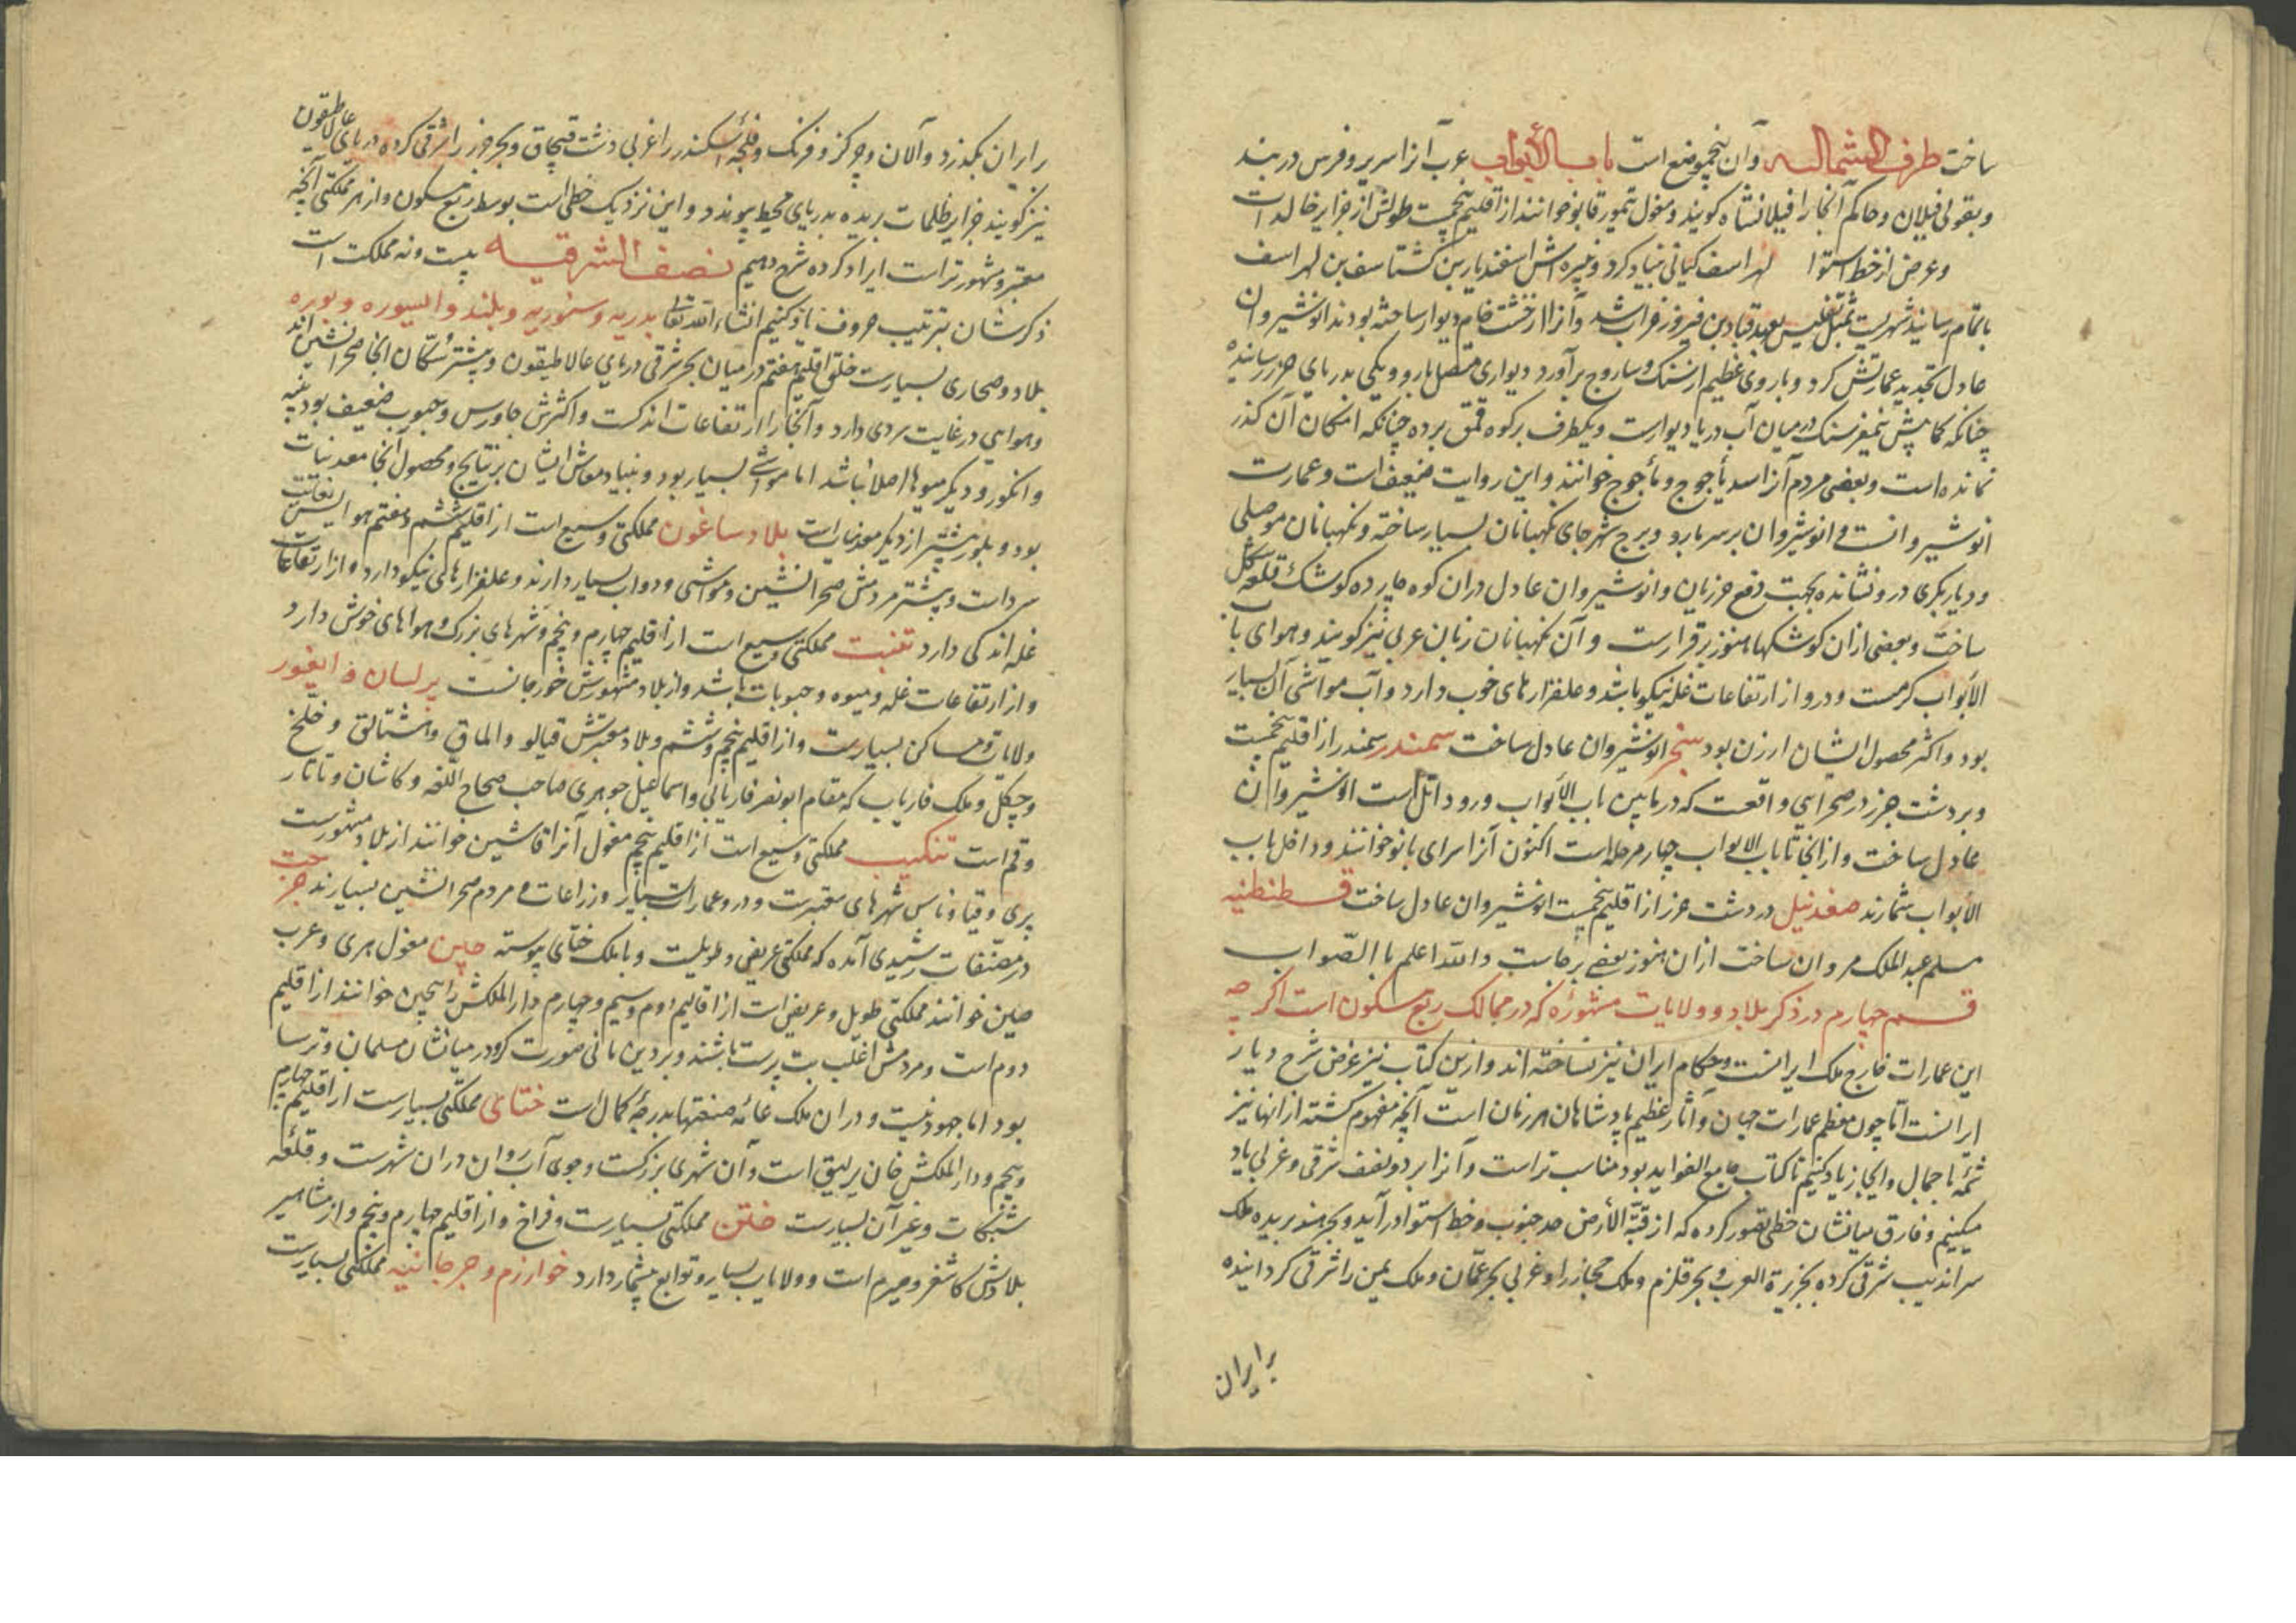 ساخت طرف الشمالیه وآن پنجموضع است باب الأبواب عرب آنرا سریر وفرس دربند
وبقولی فیلان وحاکم آنجا را فیلانشاه کویند ومغول تمورقاپو خوانند از اقلیم پنجمست طولش از جزایر خالدات
وعرض از خط استوا لهراسف کیانی بنیاد کرد ونبیره اش اسفندیار بن کشتاسف بن لهراسف
باتمام رسانید شهریست بمثل تفلیس بعهد قباد بن فیروز خراب شد وآنرا از خشت خام دیوار ساخته بودند انوشیروان
عادل تجدید عمارتش کرد وباروی عظیم از سنک وساروج برآورد دیواری متصل بارو ویکی بدریای خزر رسانیده
چنانکه کمابیش نیمفرسنک درمیان آب دریا دیوارست ویکطرف برکوه قمق برده چنانکه امکان آن کذر
نمانده است وبعضی مردم آنرا سد یأجوج ومأجوج خوانند واین روایت ضعیف است وعمارت
انوشیروانست و انوشیروان برسر بارو وبرج شهر جای نکهبانان بسیار ساخته ونکهبانان موصلی
ودیاربکری درو نشانده بجهت دفع خزریان وانوشیروان عادل دران کوه چارده کوشک قلعه شکل
ساخت وبعضی ازان کوشکها هنوز برقرارست وآن نکهبانان زبان عربی نیز کویند وهوای باب
الأبواب کرمست ودرو از ارتفاعات غله نیکو باشد وعلفزارهای خوب دارد وآب مواشی آن بسیار
بود واکثر محصول ایشان ارزن بود بنجر انوشیروان عادل ساخت سمندر سمندر از اقلیم پنجمست
وبردشت خزر در صحرایی واقعست که درمابین باب الأبواب ورود اتل است انوشیروان
عادل ساخت وازانجا تا باب الابواب چهار مرحله است اکنون آنرا سرای باتو خوانند وداخل باب
الأبواب شمارند صغدنیل دردشت خزر از اقلیم پنجمست انوشیروان عادل ساخت قسطنطنیه
مسلم عبد الملک مروان ساخت ازان هنوز بعضی برجاست والله اعلم باالصواب
قسم چهارم در ذکر بلاد وولایات مشهوره که در ممالک ربع مسکون است اکرچه
این عمارات خارج ملک ایرانست وحکام ایران نیز نساخته اند وازین کتاب نیز غرض شرح دیار
ایرانست اتا چون معظم عمارات جهان وآثار عظیم پادشاهان هر زمان است آنچه مفهوم کشته از انها نیز
شمه باجمال وایجاز یاد کنیم تا کتاب جامع الفواید بود مناسب تر است وآنرا بر دو نصف شرقی وغربی یاد
میکنیم وفارق میانشان خطی تصور کرده که از قبة الأرض حد جنوب وخط استوا درآید وبحر هند بریده ملک
سراندیب شرقی کرده بجزیرة العرب وبحر قلزم وملک حجاز را وغربی بحر عمان وملک یمن را شرقی کردانیده
برایران
ر ایران بکذرد وآلان وچرکز وفرنک وخلیجه اسکندر را غربی دشت قبچاق وبحر خزر را شرقی کرده دریای عالاطیقون
نیز کویند جزایر ظلمات بریده بدریای محیط پیوندد واین نزدیک خطی است بوسط ربع مسکون واز هر مملکتی آنچه
معتبر ومشهورتر است ایراد کرده شرح دهیم نصف الشرقیه بیست ونه مملکت است
ذکرشان بترتیب حروف یاد کنیم انشاء الله تعا بدریه وسنوریه وبلند والسیوره وبوره
بلاد وصحاری بسیارست خلق اقلیم هفتم درمیان بحر شرقی دریای عالاطیقون وبیشتر سکان انجا صحرانشین اند
وهوایی درغایت سردی دارد وآنجا را ارتفاعات اندکست واکثرش جاورس وحبوب ضعیف بود پنبه
وانکور ودیکر میوها اصلا نباشد اما مواشی بسیار بود وبنیاد معاش ایشان بر نتایج ومحصول انجا معدنیات
بود وبلور بیشتر از دیکر معدنیات است بلاد ساغون مملکتی وسیع است از اقلیم ششم وهفتم هوایش بغایت
سردست وبیشتر مردمش صحرانشین ومواشی ودواب بسیار دارند وعلفزارهای نیکو دارد واز ارتفاعات
غله اندکی دارد تبت مملکتی وسیع است از اقلیم چهارم وپنجم وشهرهای بزرک وهواهای خوش دارد
واز ارتفاعات غله ومیوه وحبوبات باشد واز بلاد مشهورش خورجانست پرلسان و ایغور
ولایات ومساکن بسیارست واز اقلیم پنجم وششم وبلاد معتبرش قیالو والماق وبشتالق وخلخ
وچکل وملک فاریاب که مقام ابونصر فاریابی واسماعیل جوهری صاحب صحاح اللغه وکاشان وتاتار
وقم است تنکیب مملکتی وسیع است از اقلیم پنجم مغول آنرا قاشین خوانند از بلاد مشهورست
پری وقیا وناس شهرهای معتبرست ودرو عمارات بسیار وزراعات و مردم صحرانشین بسیارند جرجت
درمصنفات رشیدی آمده که مملکتی عریض وطویلست وبا ملک ختای پیوسته چین مغول هری وعرب
صین خوانند مملکتی طویل وعریض است از اقالیم دوم وسیم وچهارم دار الملکش را سجین خوانند از اقلیم
دوم است ومردمش اغلب بت پرست باشند وبر دین مانی صورت کر ودرمیانشان مسلمان وترسا
بود اما جهود نیست ودران ملک غائه صنعتها بدرجه کمال است ختای مملکتی بسیارست از اقلیم چهارم
وپنجم ودار الملکش خان بالیق است وآن شهری بزرکست وجوی آب روان دران شهرست وقلعه
شبکات وغیر آن بسیارست ختن مملکتی بسیارست وفراخ واز اقلیم چهارم وپنجم واز مشاهیر
بلادش کاشغر وصیرم است وولایات بسیار وتوابع بیشمار دارد خوارزم وجرجانیه مملکتی بسیارست